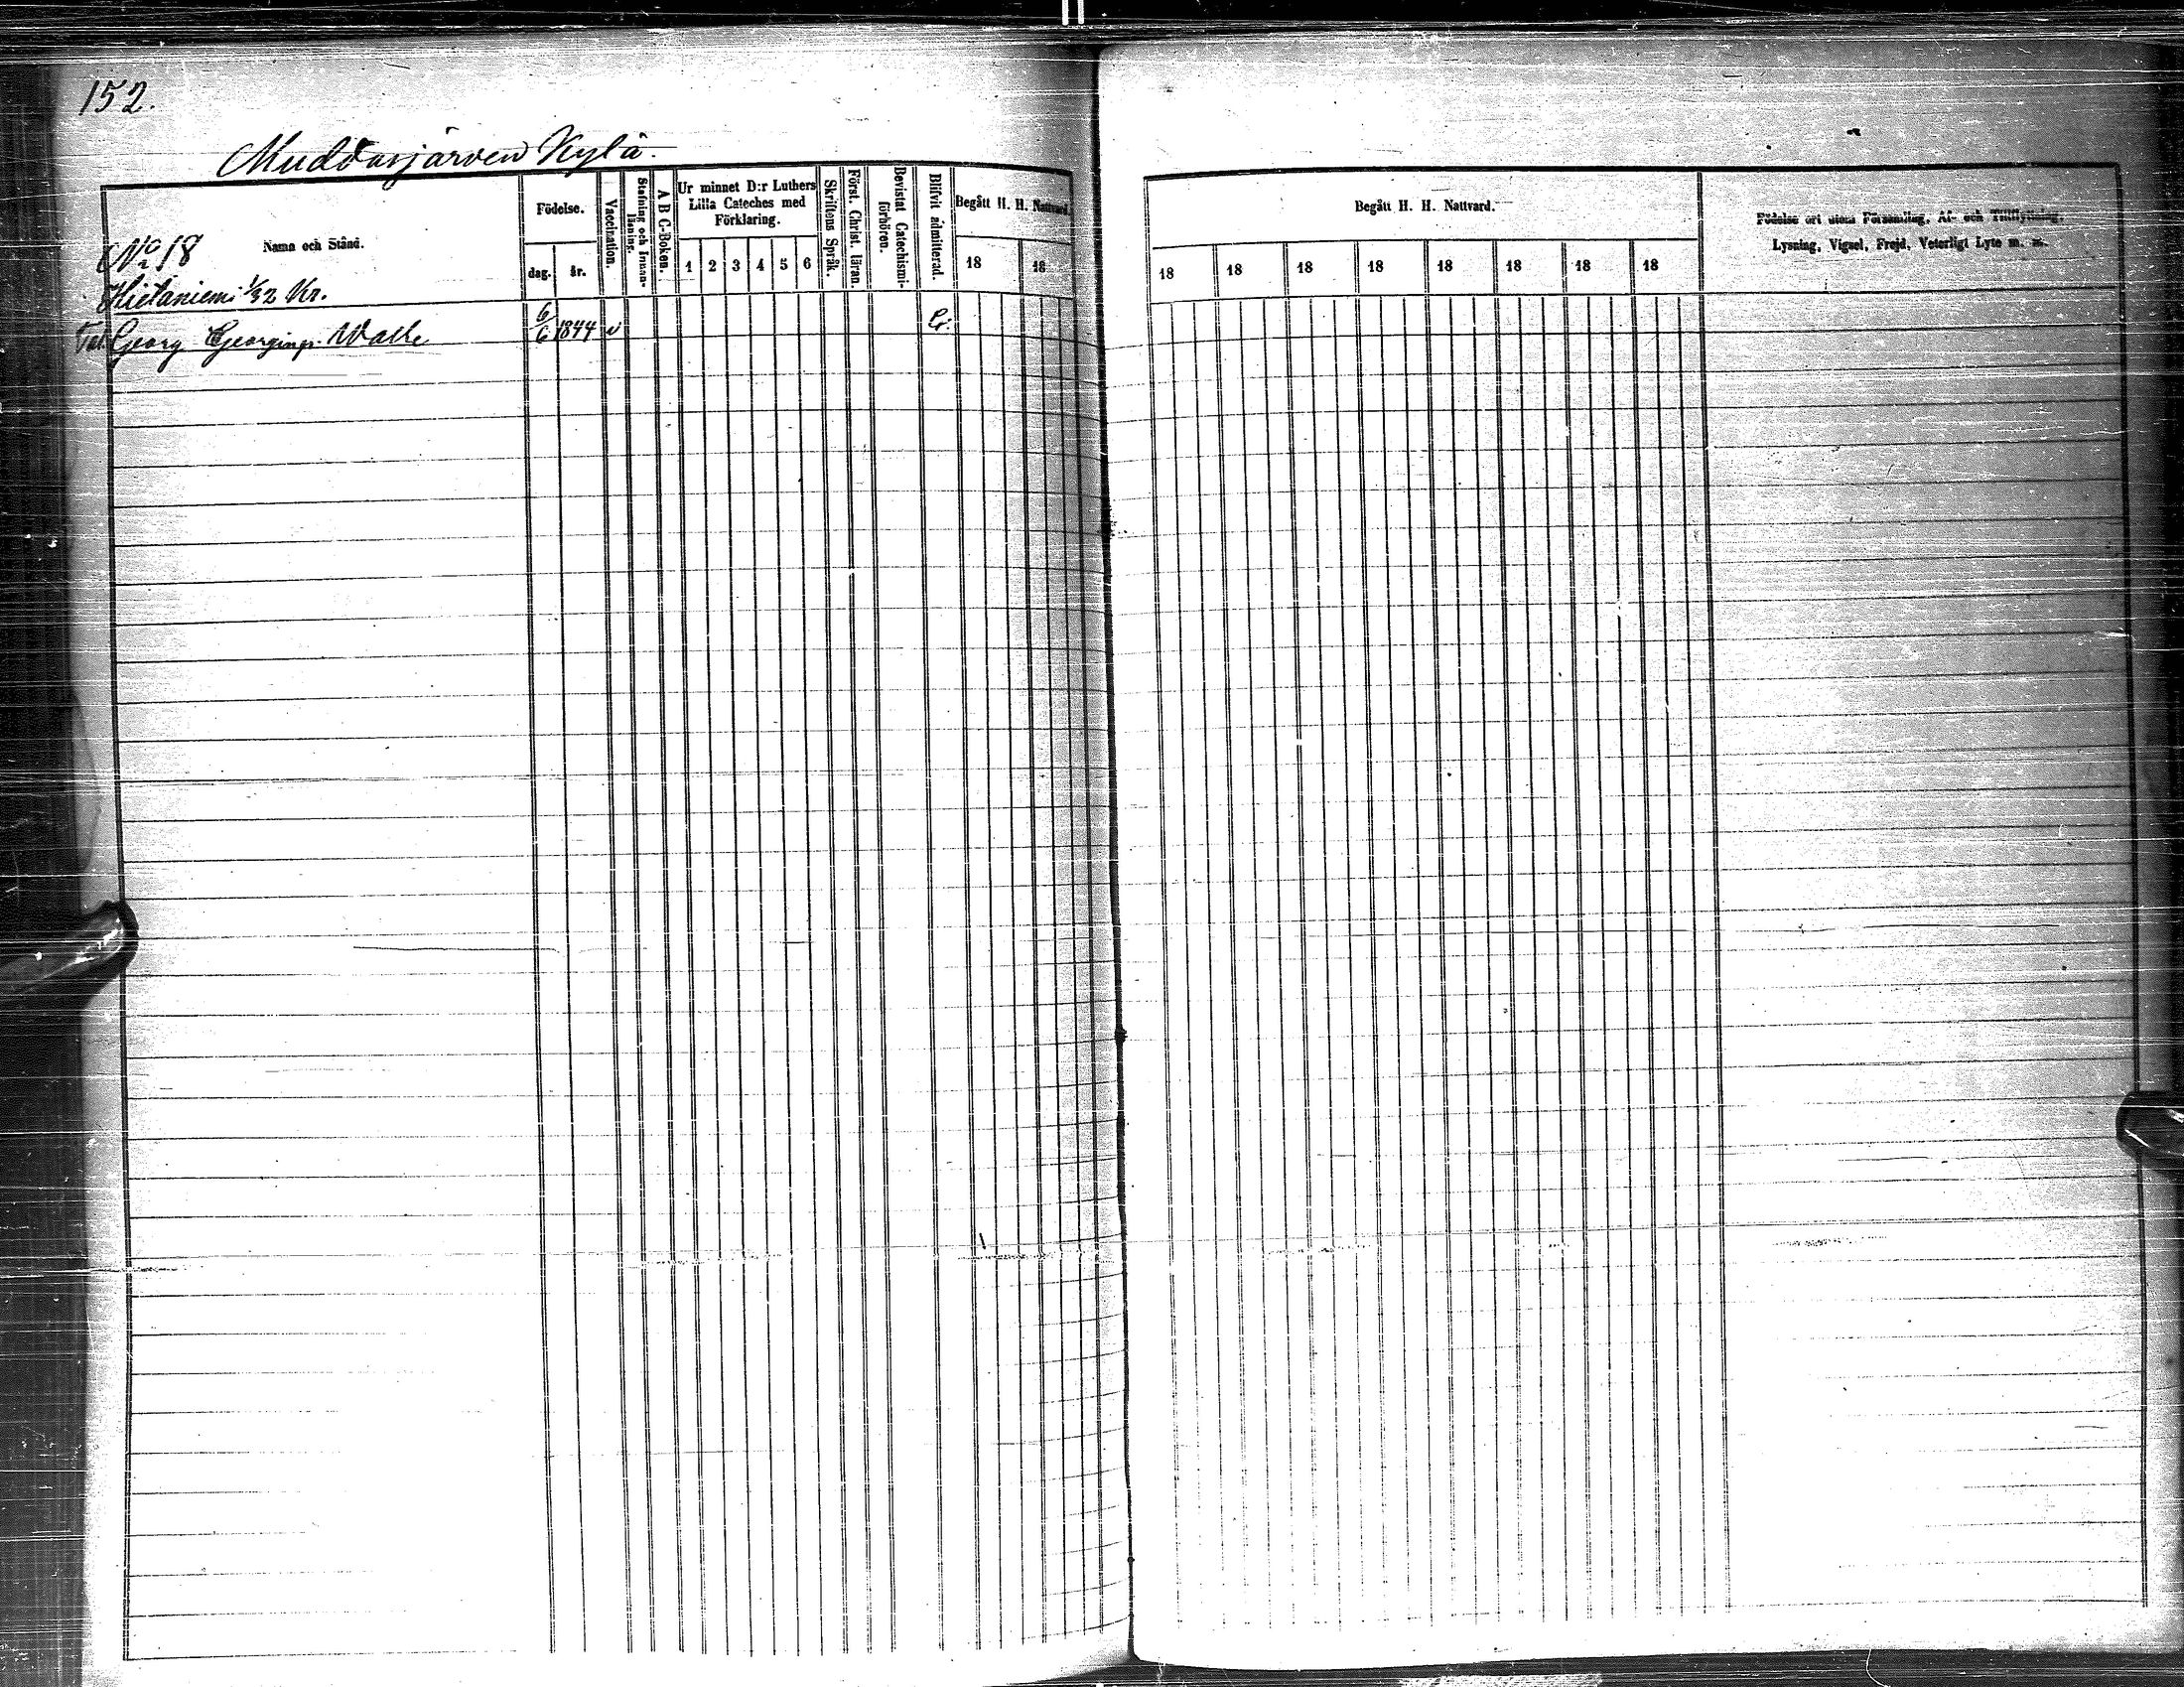 152.
Muddusjärven Kylä.
Namn och Stånd.
Födelse.
dag.
år.
Vaccination.
Stafning och Innan-
läsning.
A B C-Boken.
Ur minnet D:r Luthers
Lilla Cateches med
Förklaring.
1 2 3 4 5 6
Skriftens Språk.
Först. Christ. läran.
Bevistat Catechismi-
förhören.
Blifvit admitterad.
Begått H. H. Nattvard.
18 18
Begått H. H. Nattvard.
18 18 18 18 18 18 18 18
Födelse ort utom Församling, Af- och Tillflyttning,
Lysning, Vigsel, Frejd, Veterligt Lyte m. m.
No 18
Hietaniemi 1/32 Kr.
Georg Georginp. Walle 6/6 1844 v